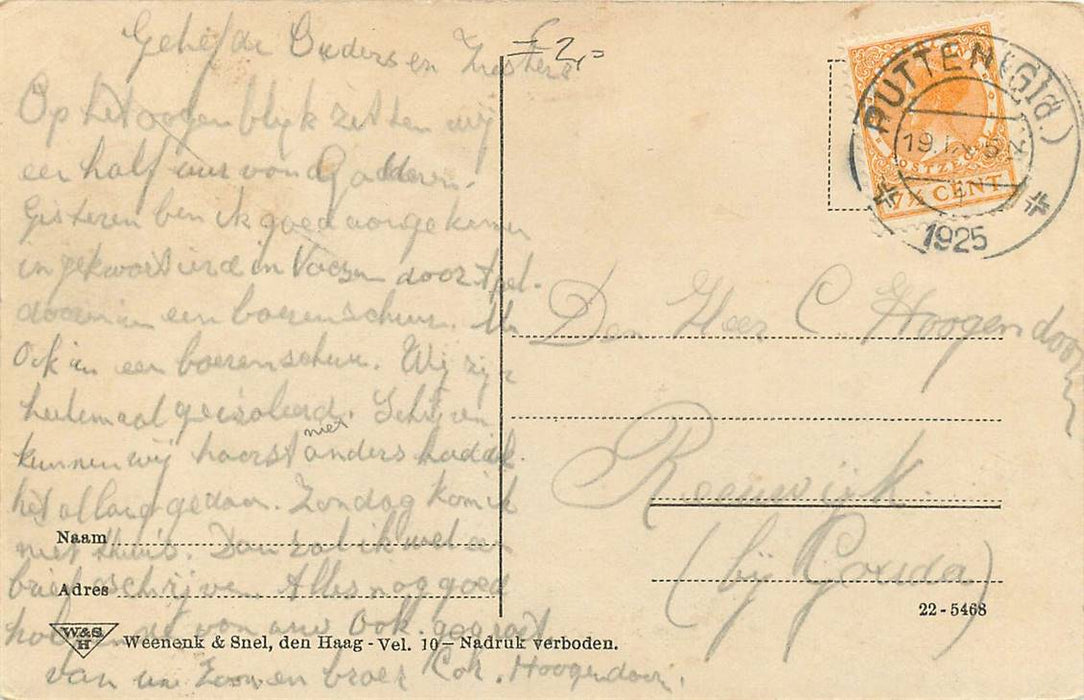 Geliefde Ouders en Zusters
Op het oogenblijk zitten wij
een half uur van
Gisteren ben ik goed aangekomen
ingekwartierd in Vaesen door Apel-
doorn in een boerenschuur.
Ook in een boerenschuur. Wij zijn
heelemaal geisoleerd. Schrijven
kunnen wij haast niet anders hadd ik
het al lang gedaan. Zondag kom ik
niet thuis. Dan zal ik wel een
brief schrijven. Alles nog goed
van uw Ook. gegroet
van uw Zoon en broer Cor. Hoogendoorn.
£ 2,=
PUTTEN (Gld.)
19. 5
1925
POSTZEGEL
7½ CENT
Den Heer C. Hoogendoorn
Reeuwijk
(bij Gouda)
Naam
Adres
22-5468
W&S
H
Weenenk & Snel, den Haag - Vel. 10 - Nadruk verboden.